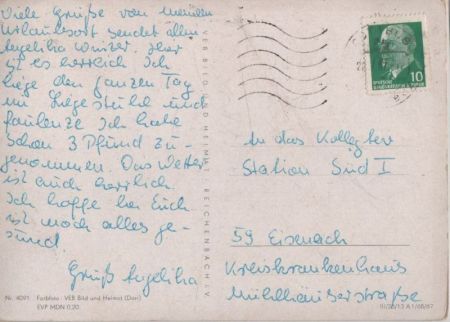 Viele Grüße von meinem
Urlaubsort sendet allen
Angelika Winter. Hier
ist es herrlich. Ich
liege den ganzen Tag
im Liegestuhl und
faulenze. Ich habe
schon 3 Pfund zu-
genommen. Das Wetter
ist auch herrlich.
Ich hoffe bei Euch
ist noch alles ge-
sund.
Gruß Angelika
Nr. 4091 Farbfoto: VEB Bild und Heimat (Dari)
EVP MDN 0,20
VEB BILD UND HEIMAT REICHENBACH i. V.
10
DEUTSCHE
DEMOKRATISCHE REPUBLIK
An das Kollektiv
Station Süd I
59 Eisenach
Kreiskrankenhaus
Mühlhäuserstraße
III/26/13 A1/68/67